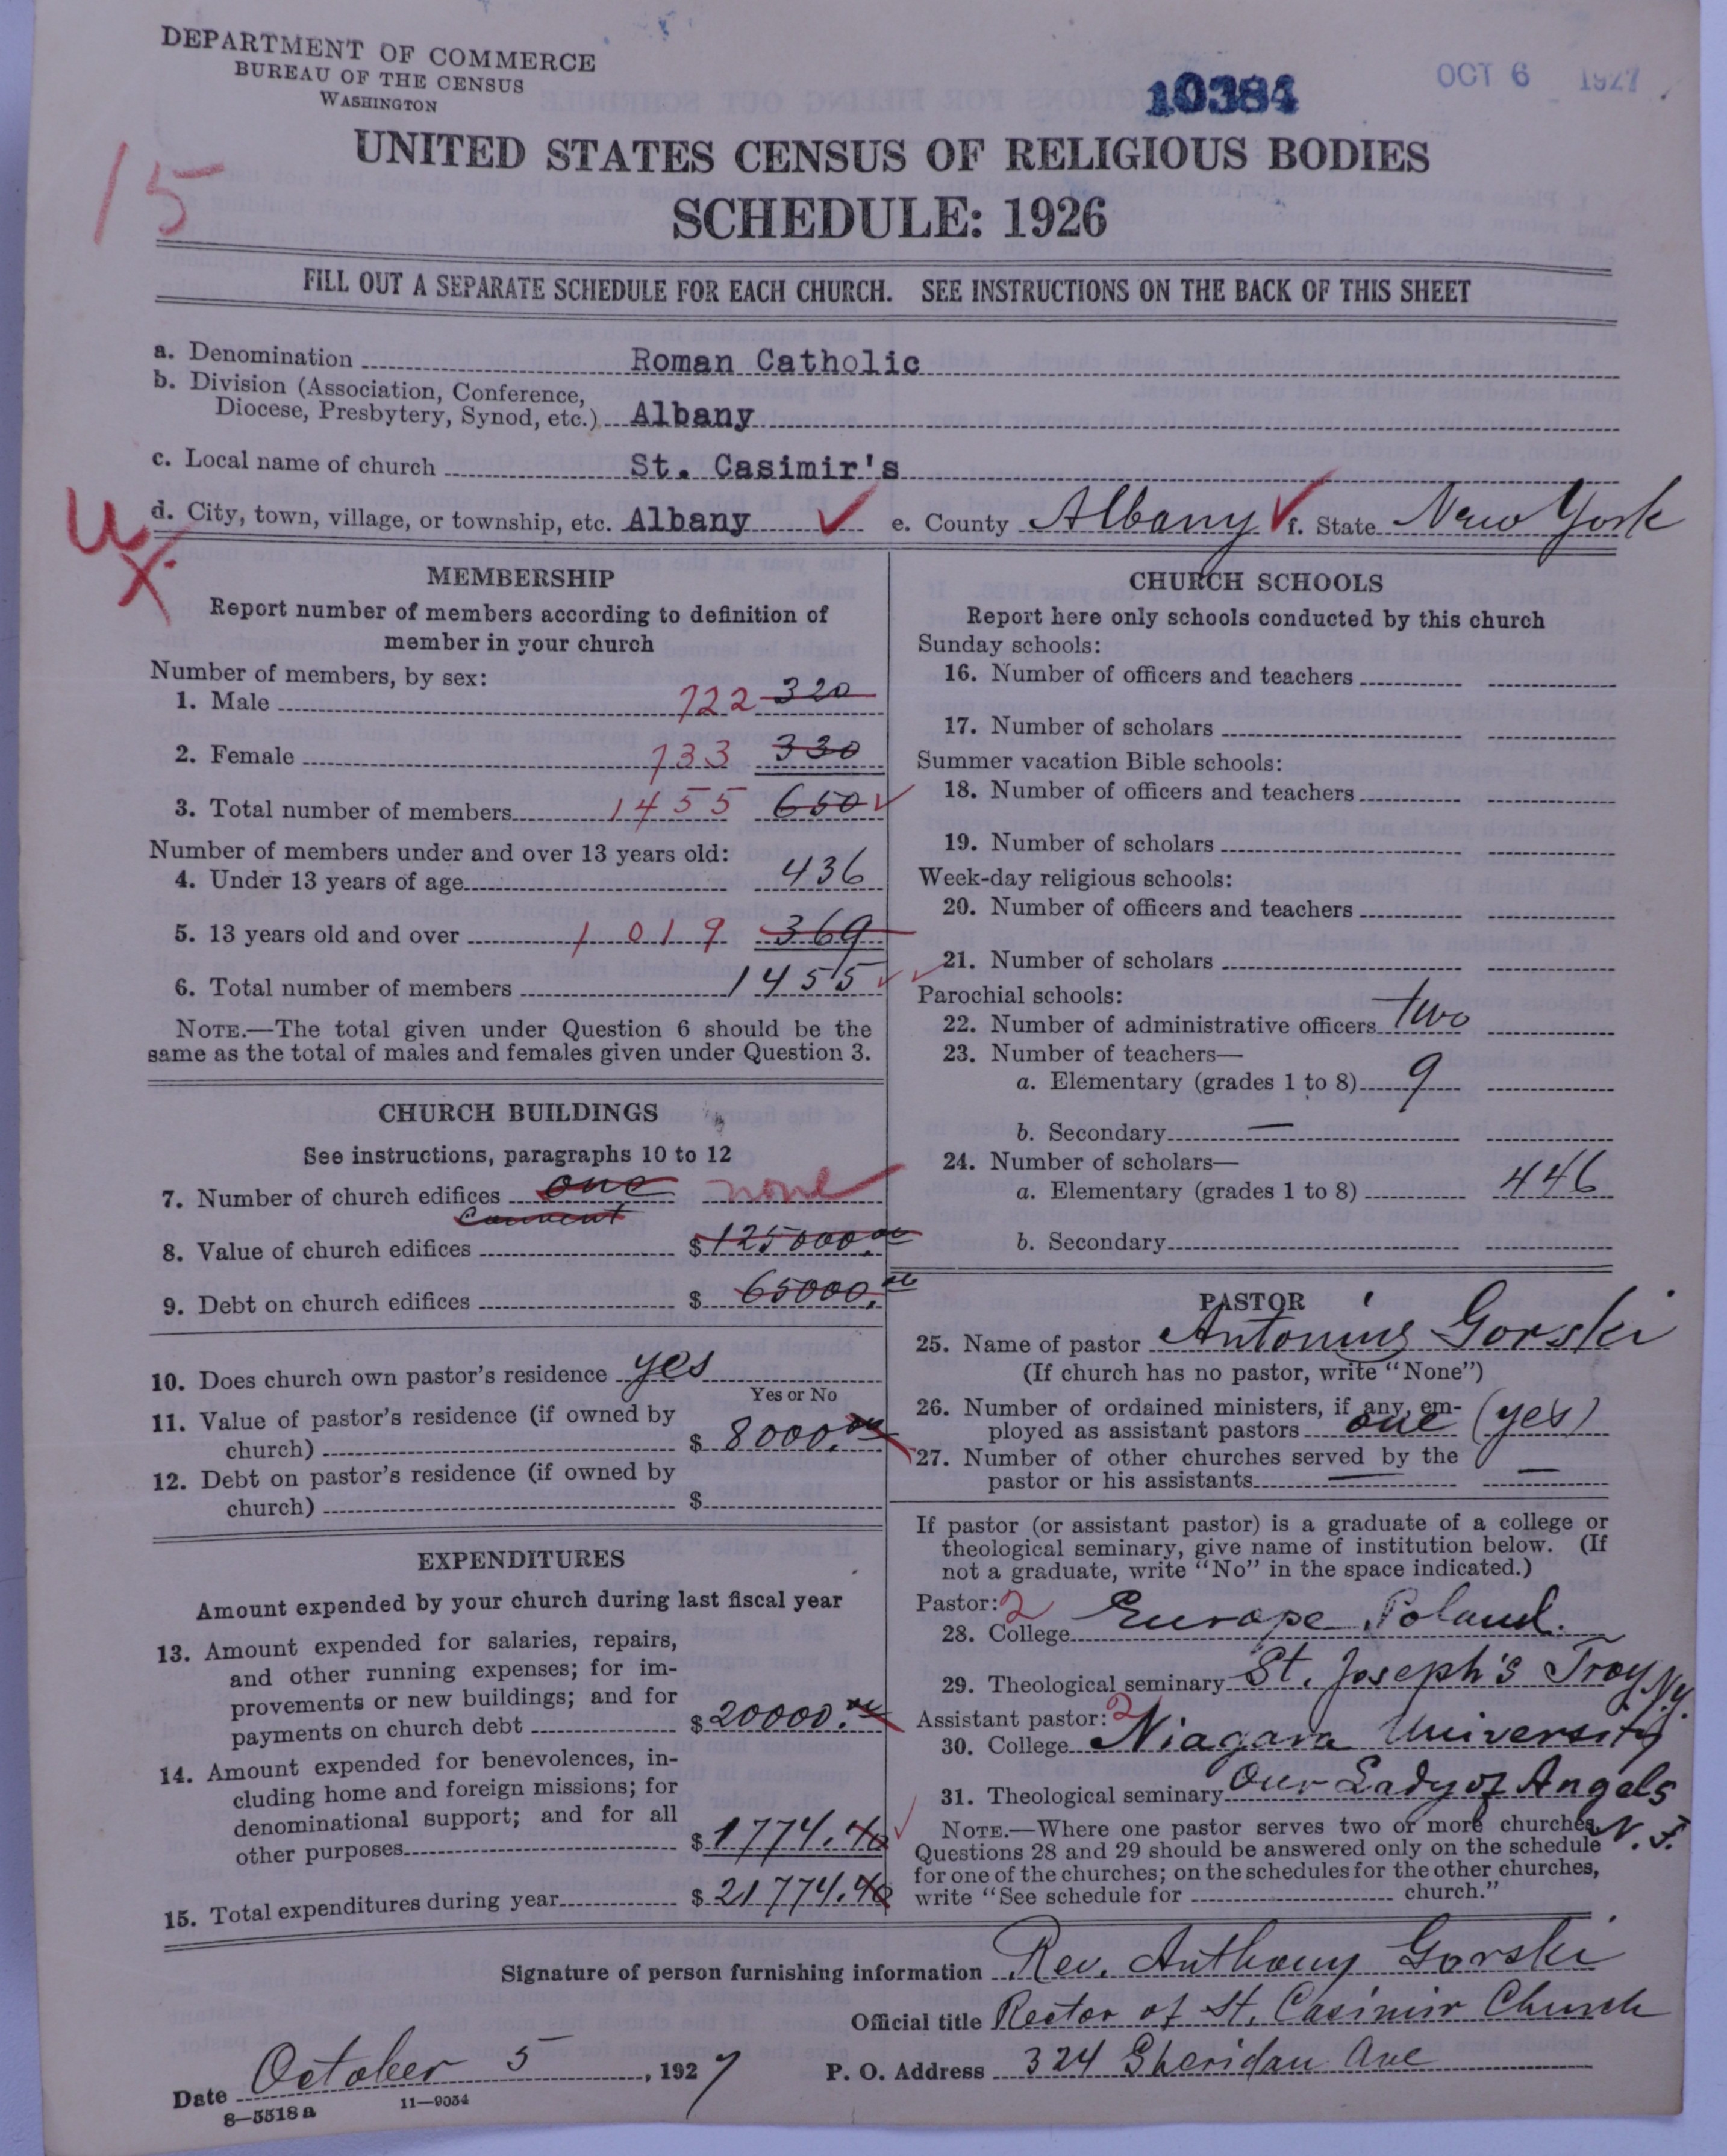 DEPARTMENT OF COMMERCE
BUREAU OF THE CENSUS
WASHINGTON
10384
OCT 6 1927
15
UNITED STATES CENSUS OF RELIGIOUS BODIES
SCHEDULE: 1926
FILL OUT A SEPARATE SCHEDULE FOR EACH CHURCH. SEE INSTRUCTIONS ON THE BACK OF THIS SHEET
a. Denomination Roman Catholic
b. Division (Association, Conference,
Diocese, Presbytery, Synod, etc.) Albany
c. Local name of church St. Casimir's
d. City, town, village, or township, etc. Albany ✓ e. County Albany ✓ f. State New York
X
MEMBERSHIP
Report number of members according to definition of
member in your church
Number of members, by sex:
1. Male 722 320
2. Female 733 330
3. Total number of members 1455 650 ✓
Number of members under and over 13 years old:
4. Under 13 years of age 436
5. 13 years old and over 1019 369
6. Total number of members 1455 ✓
NOTE.—The total given under Question 6 should be the
same as the total of males and females given under Question 3.
CHURCH BUILDINGS
See instructions, paragraphs 10 to 12
7. Number of church edifices one none
convent
8. Value of church edifices $ 125000.00
9. Debt on church edifices $ 65000.00
10. Does church own pastor's residence yes
Yes or No
11. Value of pastor's residence (if owned by
church) $ 8000.00
12. Debt on pastor's residence (if owned by
church) $
EXPENDITURES
Amount expended by your church during last fiscal year
13. Amount expended for salaries, repairs,
and other running expenses; for im-
provements or new buildings; and for
payments on church debt $ 20000.00
14. Amount expended for benevolences, in-
cluding home and foreign missions; for
denominational support; and for all
other purposes $ 1774.40
15. Total expenditures during year $ 21774.40
CHURCH SCHOOLS
Report here only schools conducted by this church
Sunday schools:
16. Number of officers and teachers
17. Number of scholars
Summer vacation Bible schools:
18. Number of officers and teachers
19. Number of scholars
Week-day religious schools:
20. Number of officers and teachers
21. Number of scholars
Parochial schools:
22. Number of administrative officers two
23. Number of teachers—
a. Elementary (grades 1 to 8) 9
b. Secondary —
24. Number of scholars—
a. Elementary (grades 1 to 8) 446
b. Secondary
PASTOR
25. Name of pastor Antonius Gorski
(If church has no pastor, write "None")
26. Number of ordained ministers, if any, em-
ployed as assistant pastors one (yes)
27. Number of other churches served by the
pastor or his assistants — —
If pastor (or assistant pastor) is a graduate of a college or
theological seminary, give name of institution below. (If
not a graduate, write "No" in the space indicated.)
Pastor: 2
28. College Europe Poland.
29. Theological seminary St. Joseph's Troy N.Y.
Assistant pastor: 2
30. College Niagara University
31. Theological seminary Our Lady of Angels
N. F.
NOTE.—Where one pastor serves two or more churches,
Questions 28 and 29 should be answered only on the schedule
for one of the churches; on the schedules for the other churches,
write "See schedule for church."
Signature of person furnishing information Rev. Anthony Gorski
Official title Rector of St. Casimir Church
Date October 5, 1927 P. O. Address 324 Sheridan Ave
8—5518a 11—9054